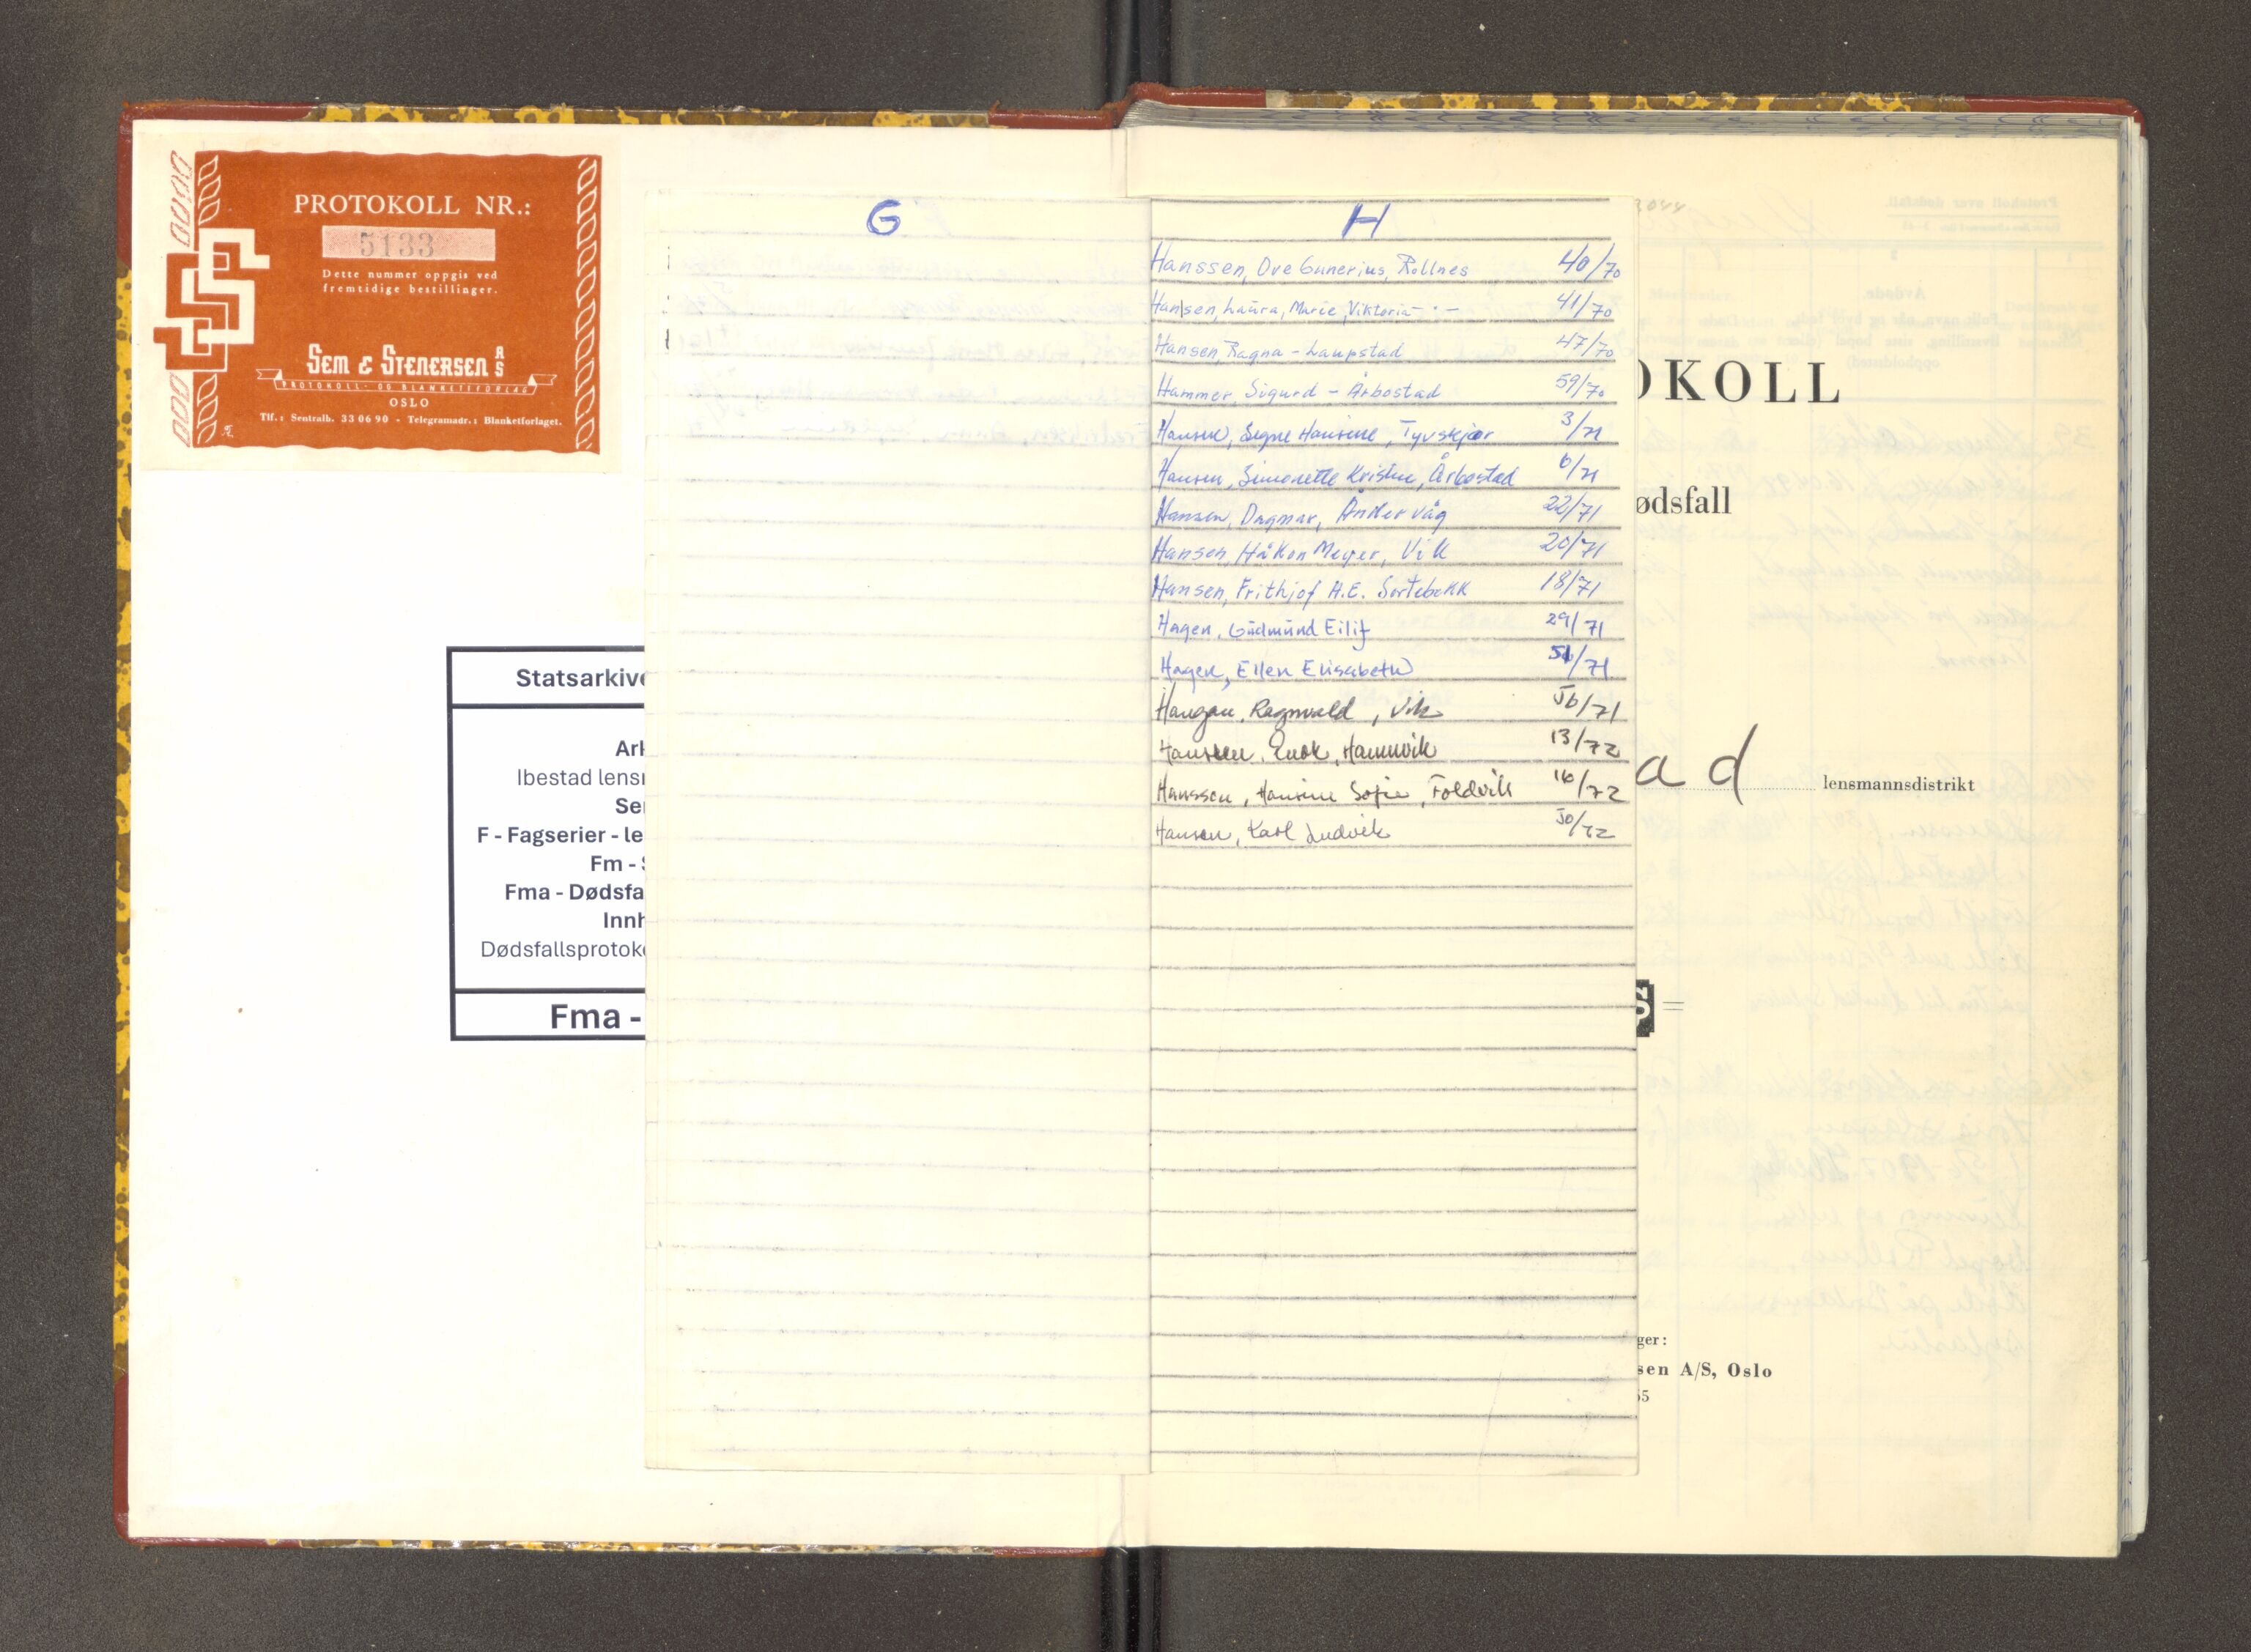 PROTOKOLL NR.:
5133
Dette nummer oppgis ved
fremtidige bestillinger.
SEM & STENERSEN A/S
PROTOKOLL- OG BLANKETTFORLAG
OSLO
Tlf.: Sentralb. 33 06 90 - Telegramadr.: Blanketforlaget.
Statsarkive
Ark
Ibestad lensm
Ser
F - Fagserier - le
Fm - S
Fma - Dødsfa
Innh
Dødsfallsprotoko
Fma -
G
H
Hanssen, Ove Gunerius, Rollnes 40/70
Hansen, Laura, Marie, Viktoria - " - 41/70
Hansen, Ragna - Laupstad 47/70
Hammer, Sigurd - Årbostad 59/70
Hansen, Signe Hansine, Tyvskjær 3/71
Hansen, Simonette Kristine, Årbostad 6/71
Hansen, Dagmar, Åndervåg 22/71
Hansen, Håkon Meyer, Vik 20/71
Hansen, Frithjof A.E. Sørtebekk 18/71
Hagen, Gudmund Eilif 29/71
Hagen, Ellen Elisabeth 51/71
Haugan, Ragnvald, Vik 56/71
Hanssen, Enok, Hamnvik 13/72
Hanssen, Hansine Sofie, Foldvik 16/72
Hansen, Karl Ludvik 50/72
OKOLL
ødsfall
ad lensmannsdistrikt
S
ger:
sen A/S, Oslo
65